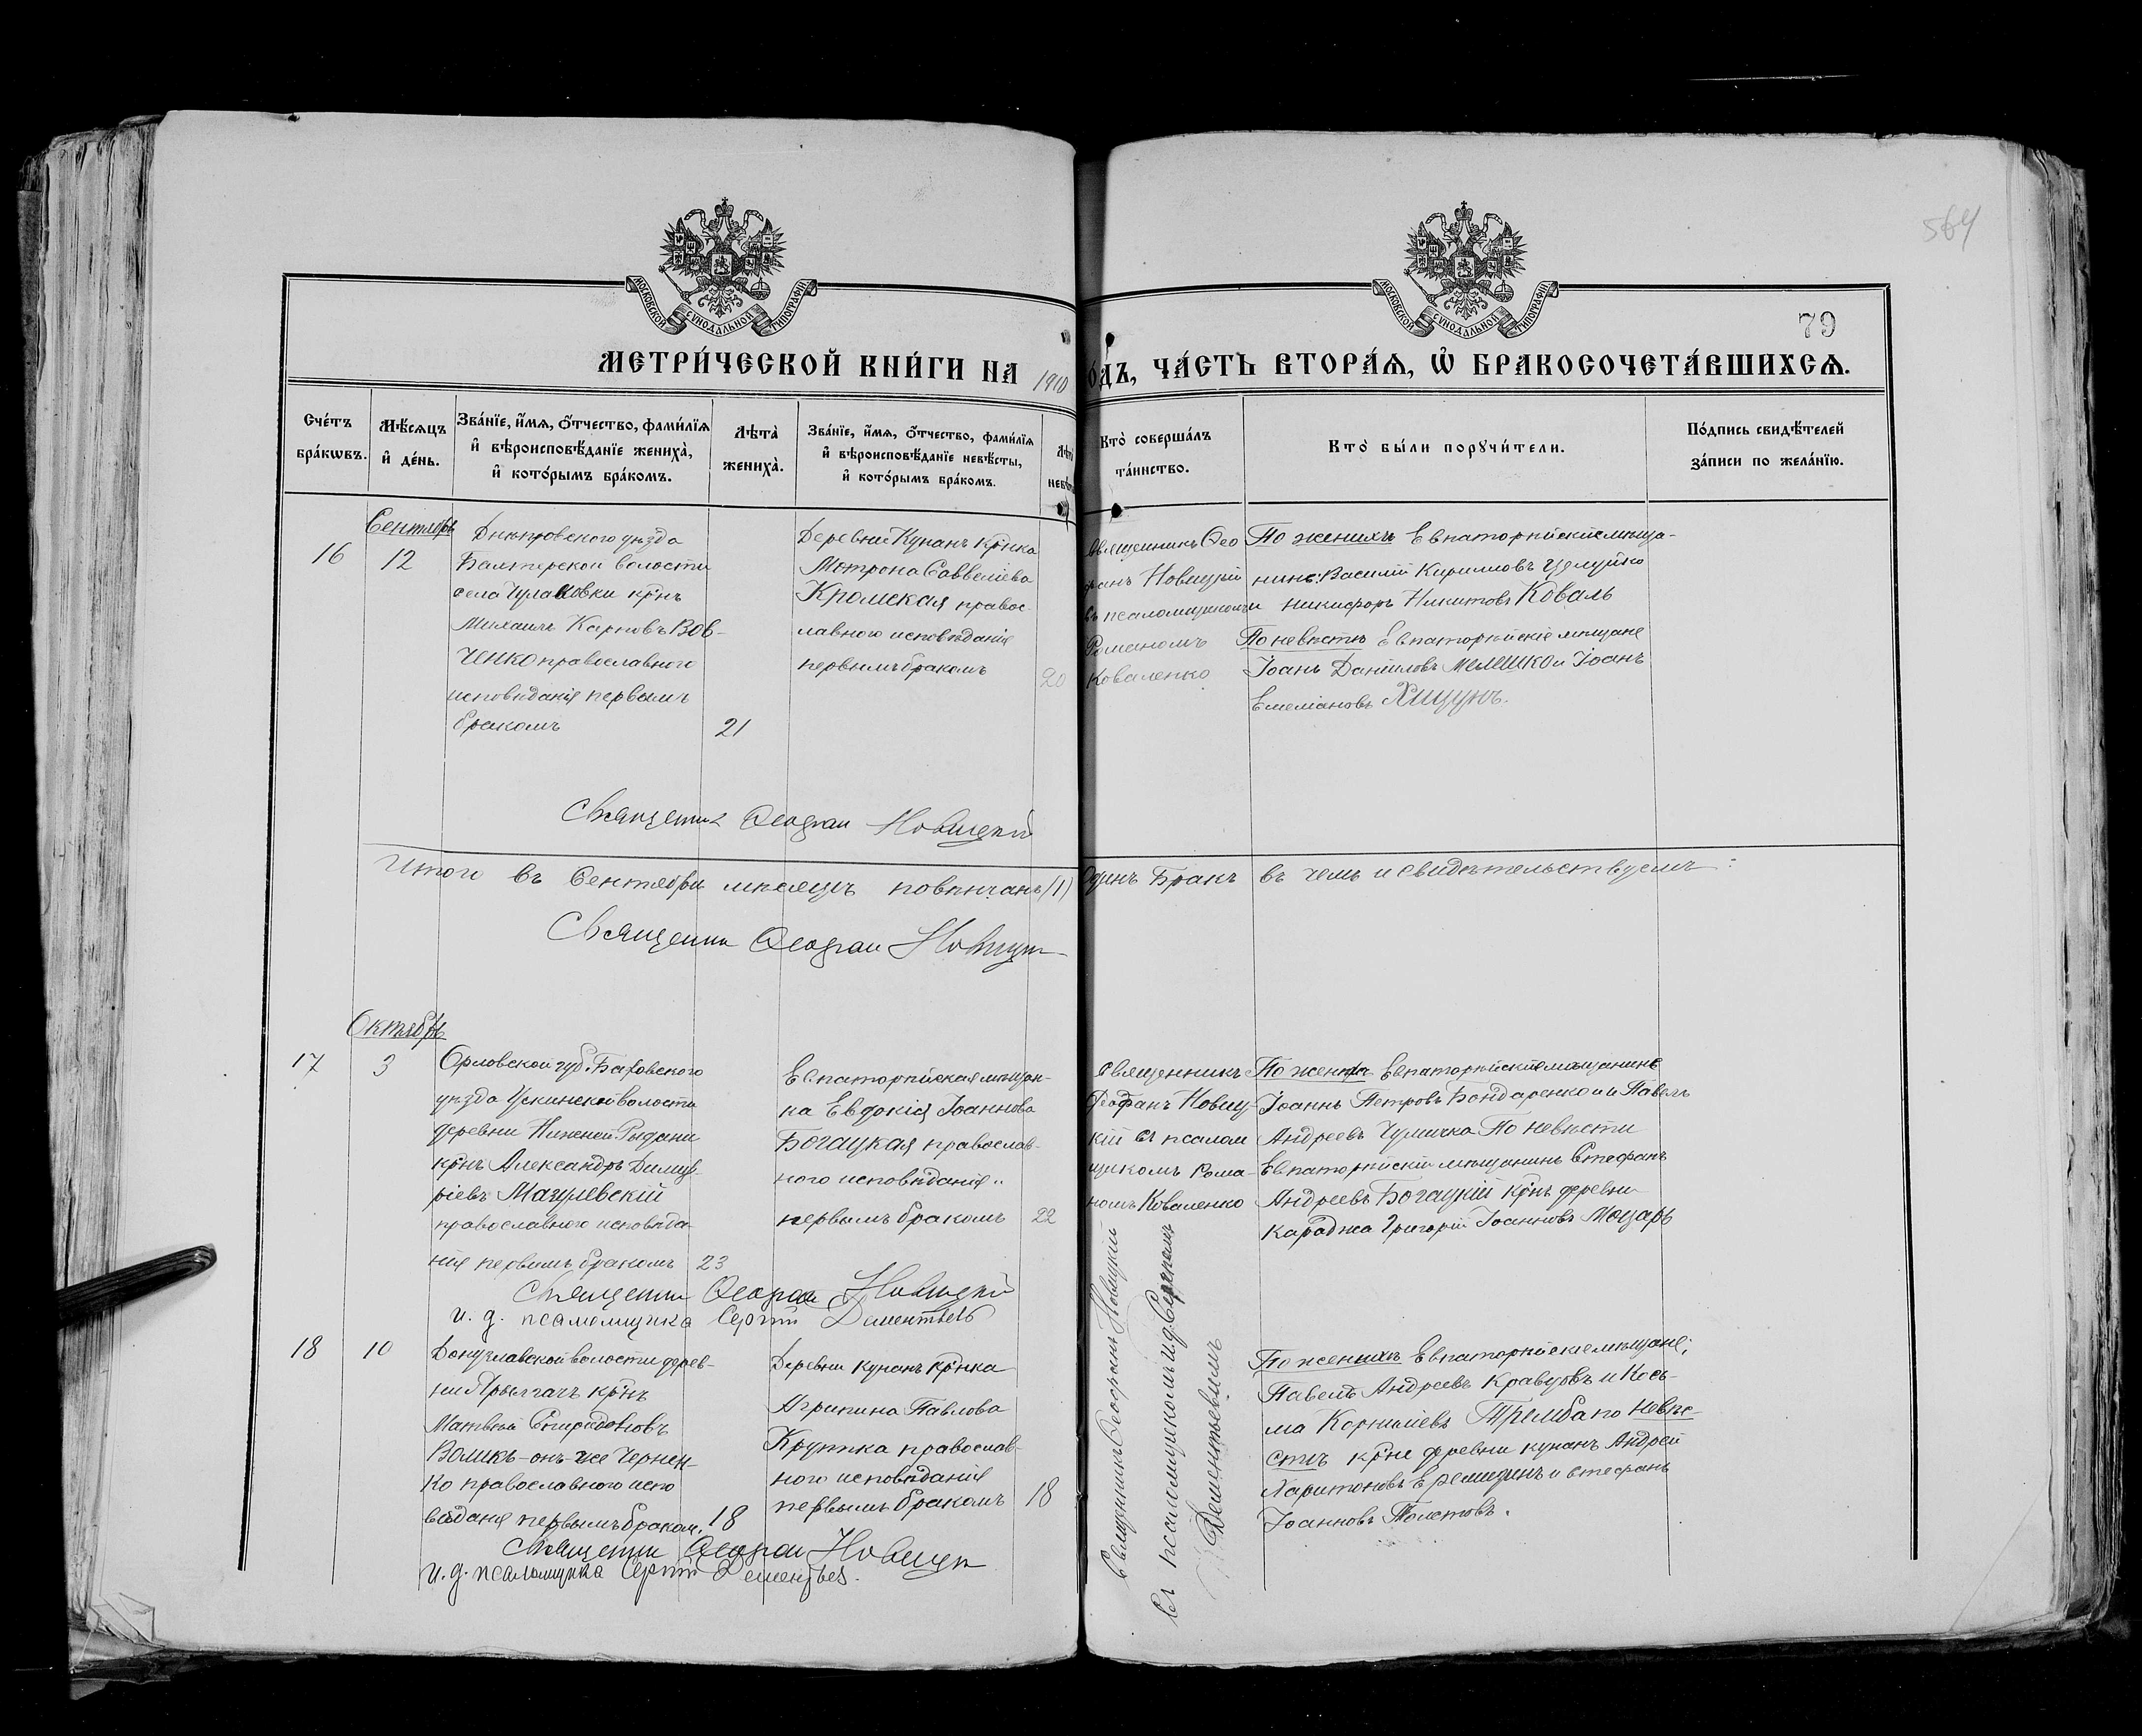 564
МОСКОВСКОЙ СѴНОДАЛЬНОЙ ТИПОГРАФІИ
МОСКОВСКОЙ СѴНОДАЛЬНОЙ ТИПОГРАФІИ
79
МЕТРИ́ЧЕСКОЙ КНИ́ГИ НА 1910 О́ДЪ, ЧА́СТЬ ВТОРА́Ѧ, Ѡ҆ БРАКОСОЧЕТА́ВШИХСѦ.
Счѐтъ бра́кѡвъ.
Мѣ́сяцъ и҆ де́нь.
Зва́нїе, и҆́мѧ, ѻ҆́тчество, фами́лїѧ и҆ вѣроисповѣ́данїе жениха̀, и҆ кото́рымъ бра́комъ.
Лѣ́та̀ жениха̀.
Зва́нїе, и҆́мѧ, ѻ҆́тчество, фами́лїѧ и҆ вѣроисповѣ́данїе невѣ́сты, и҆ кото́рымъ бра́комъ.
Кто̀ соверша́лъ та́инство.
Кто̀ бы́ли порꙋчи́тели.
По́дпись свидѣ́телей за́писи по жела́нїю.
Сентябрь
16
12
Днѣпровскаго уѣзда
волости
села Чулаковки кр̃нъ
Михаилъ Карповъ Вов-
ченко православнаго
исповѣданія первымъ
бракомъ
21
Деревни Кунанъ кр̃нка
Мотрона Саввеліева
Кромская правос
лавнаго исповѣданія
первымъ бракомъ
20
Священникъ Ѳео
фанъ Новицкій
съ псаломщикомъ
Романомъ
Коваленко
По женихѣ Евпаторійскіе мѣща-
нине: Василій Кирилловъ Цѣлуйко
и Никифоръ Никитовъ Коваль
По невѣстѣ Евпаторійскіе мѣщане
Іоанъ Даніиловъ Мелешко и Іоанъ
Емеліановъ Хищунъ.
Священник Ѳеофан Новицкій
Итого въ Сентябрѣ мѣсяцѣ повѣнчанъ (1) одинъ Бракъ въ чемъ и свидѣтельствуемъ:
Священник Ѳеофан Новицкій
Октябрь
17
3
Орловской губ.
уѣзда волости
деревни Нижней
кр̃нъ Александръ Димит-
ріевъ Магулевскій
православнаго исповѣда-
нія первымъ бракомъ
23
Евпаторійская мѣщан-
ка Евдокія Іоаннова
Богацкая православ-
ного исповѣданія
первымъ бракомъ
22
Священникъ
Ѳеофанъ Новиц-
кій съ псалом
щикомъ Рома-
номъ Коваленко
По женихѣ Евпаторійскіе мѣщанине
Іоаннъ Петровъ Бондаренко и Павелъ
Андреевъ Чумичка По невѣсти
Евпаторійскій мѣщанинъ Стефанъ
Андреевъ Богацкій кр̃нъ деревни
Караджа Григорій Іоанновъ Моцарь
Священник Ѳеофан Новицкій
и. д. псаломщика Сергій Дементьевъ
18
10
Донузлавской волости дерев-
ни Ярылгачъ кр̃нъ
Матвѣй Спиридоновъ
Воликъ-онъ-же Чернен-
ко православнаго испо
вѣданія первымъ браком.
18
Деревни Кунанъ кр̃нка
Агрипина Павлова
Крупка православ-
ного исповѣданія
первымъ бракомъ
18
Священникъ Ѳеофанъ Новицкій
съ псаломщикомъ и.д. Сергіемъ
Дементьевымъ
По женихѣ Евпаторійскіе мѣщане;
Павелъ Андреевъ Кравцовъ и Кось-
ма Корниліевъ Трембa по невѣ-
стѣ кр̃не деревни Кунанъ Андрей
Харитоновъ и Стефанъ
Іоанновъ Толстовъ.
Священник Ѳеофан Новицкій
и. д. псаломщика Сергій Дементьев.